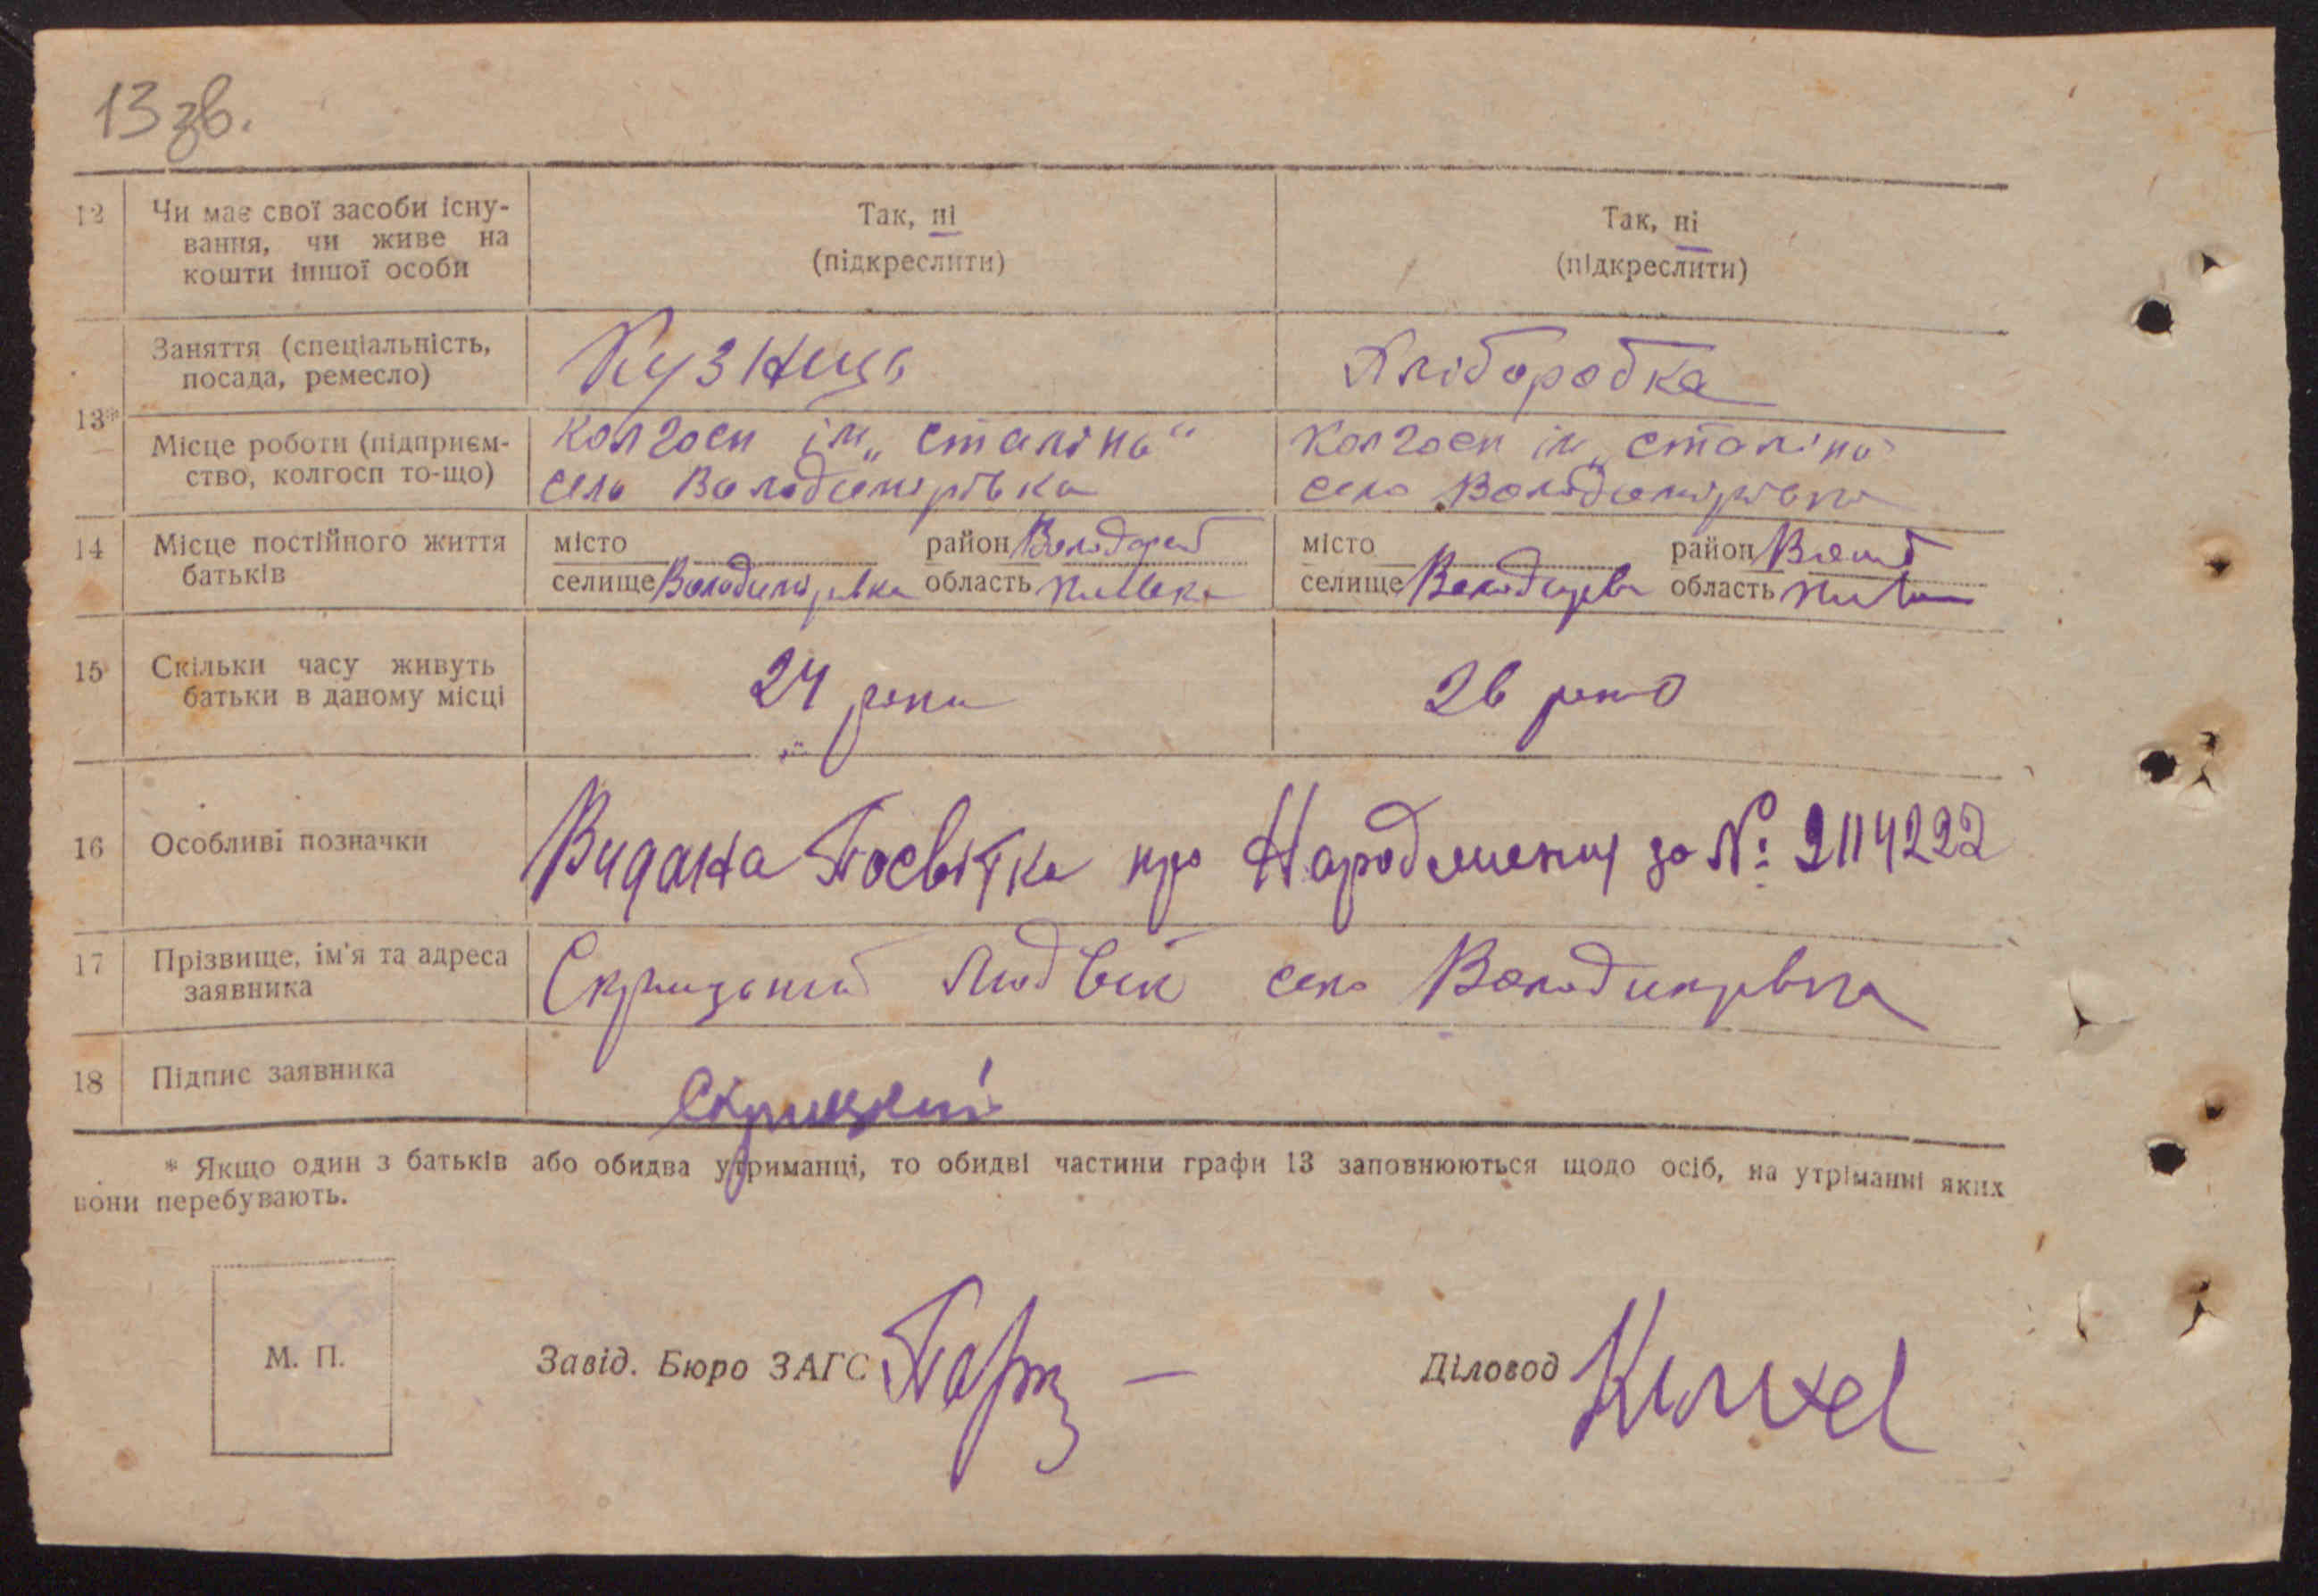 13 зв.
12 Чи має свої засоби існу-
вання, чи живе на
кошти іншої особи
Так, ні
(підкреслити)
Так, ні
(підкреслити)
13*
Заняття (спеціальність,
посада, ремесло)
Кузнець
Хліборобка
Місце роботи (підприєм-
ство, колгосп то-що)
колгосп ім „Сталіна“
село Володимирівка
колгосп ім „Сталіна“
село Володимирівка
14 Місце постійного життя
батьків
місто район Володарсь
селище Володимирівка область Київска
місто район
селище область
15 Скільки часу живуть
батьки в даному місці
24 роки
26 років
16 Особливі позначки
Видана Посвітка про Народження за № 2114222
17 Прізвище, ім'я та адреса
заявника
Людвік село Володимирівка
18 Підпис заявника
Скрицкий
* Якщо один з батьків або обидва утриманці, то обидві частини графи 13 заповнюються щодо осіб, на утріманні яких
вони перебувають.
М. П.
Завід. Бюро ЗАГС
Діловод